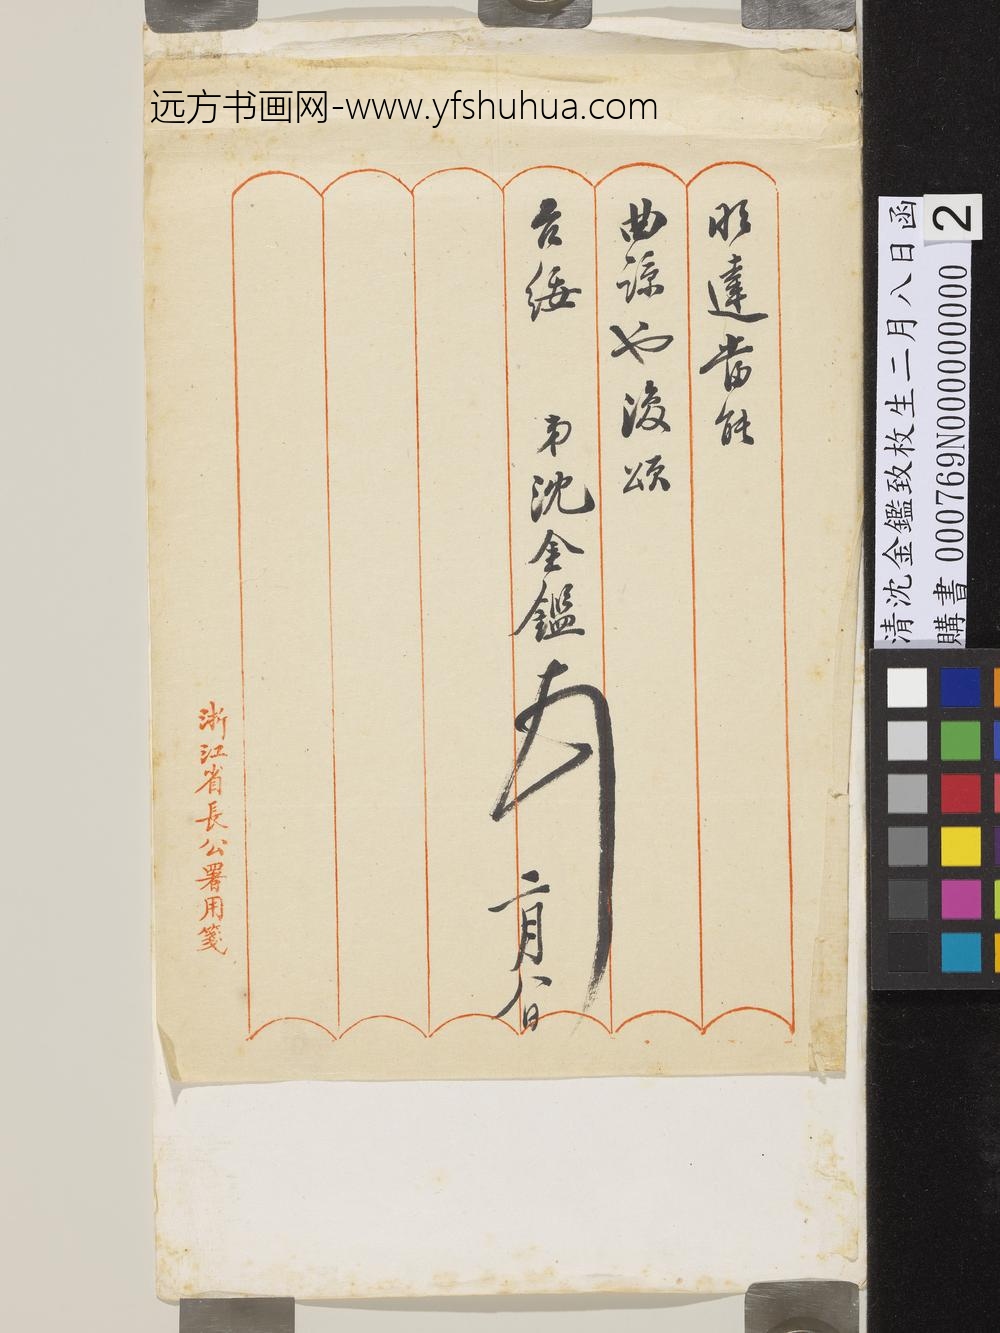 远方书画网-www.yfshuhua.com
明達當能
曲諒也復頌
台綏 弟沈金鑑
二月八日
浙江省長公署用箋
清沈金鑑致枚生二月八日函
購書 000769N000000000
2